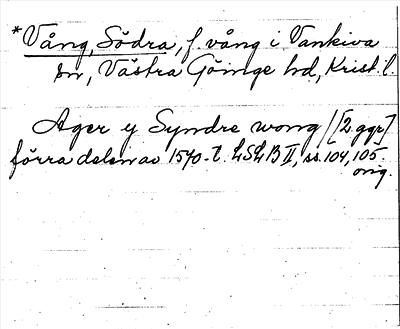 *Vång, Södra, f. vång i Vankiva
sn, Västra Göinge hd, Krist. l.
Ager y Syndre wong/[2 ggr]
förra delen av 1540-t. LSLB II, ss. 104, 105.
orig.